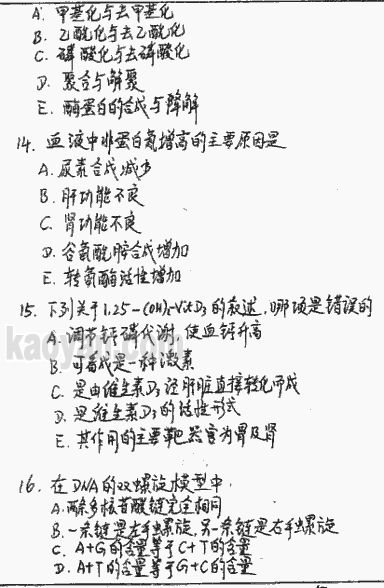 A. 甲基化与去甲基化
B. 乙酰化与去乙酰化
C. 磷酸化与去磷酸化
D. 聚合与解聚
E. 酶蛋白的合成与降解
14. 血液中非蛋白氮增高的主要原因是
A. 尿素合成减少
B. 肝功能不良
C. 肾功能不良
D. 谷氨酰胺合成增加
E. 转氨酶活性增加
15. 下列关于1.25-(OH)2-VitD3的叙述，哪项是错误的
A. 调节钙磷代谢，使血钙升高
B. 可看成是一种激素
C. 是由维生素D3经肝脏直接转化而成
D. 是维生素D3的活性形式
E. 其作用的主要靶器官为胃及肾
16. 在DNA的双螺旋模型中
A. 两条多核苷酸链完全相同
B. 一条链是左手螺旋，另一条链是右手螺旋
C. A+G的含量等于C+T的含量
D. A+T的含量等于G+C的含量